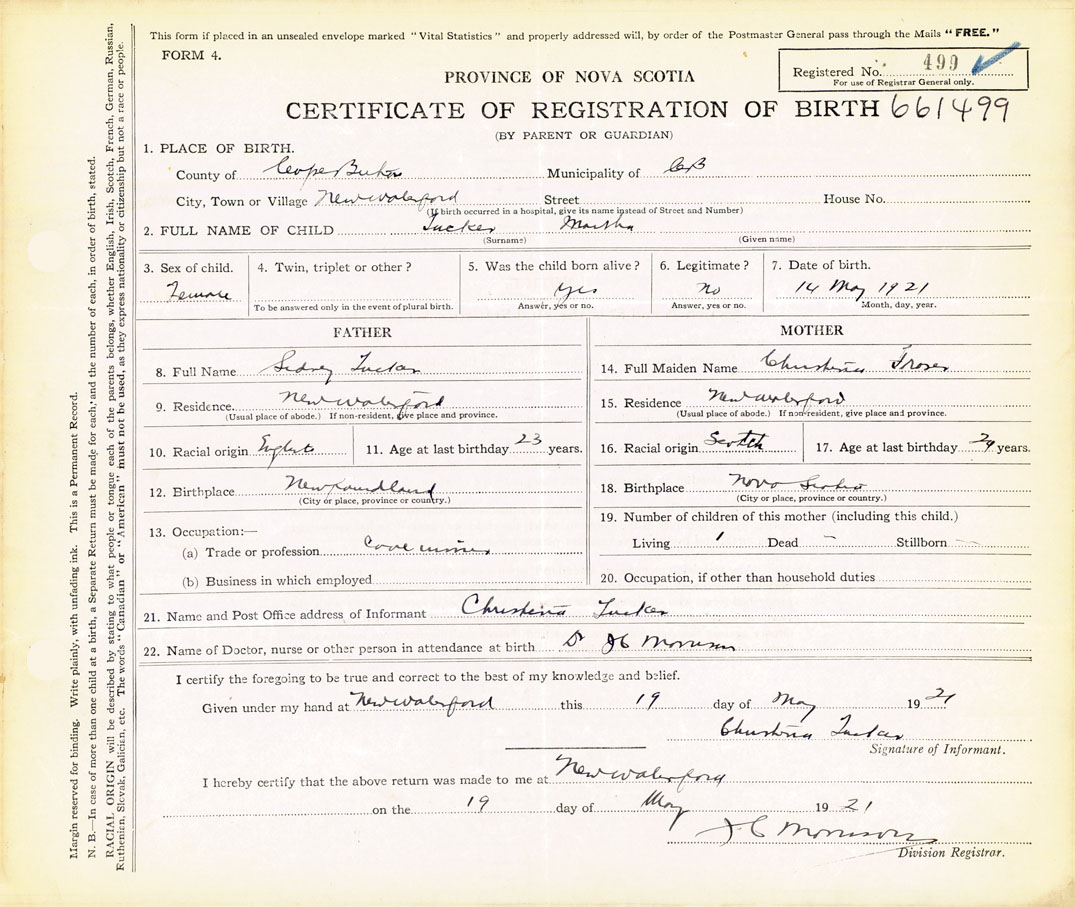 This form if placed in an unsealed envelope marked "Vital Statistics" and properly addressed will, by order of the Postmaster General pass through the Mails "FREE."
FORM 4.
Registered No. 499
For use of Registrar General only.
PROVINCE OF NOVA SCOTIA
CERTIFICATE OF REGISTRATION OF BIRTH 661499
(BY PARENT OR GUARDIAN)
1. PLACE OF BIRTH.
County of Cape Breton Municipality of CB
City, Town or Village New Waterford Street House No.
(If birth occurred in a hospital, give its name instead of Street and Number)
2. FULL NAME OF CHILD Tucker Martha
(Surname) (Given name)
3. Sex of child. 4. Twin, triplet or other? 5. Was the child born alive? 6. Legitimate? 7. Date of birth.
Female yes no 14 May 1921
To be answered only in the event of plural birth. Answer, yes or no. Answer, yes or no. Month, day, year.
FATHER
8. Full Name Sidney Tucker
9. Residence. New Waterford
(Usual place of abode.) If non-resident, give place and province.
10. Racial origin English 11. Age at last birthday 23 years.
12. Birthplace Newfoundland
(City or place, province or country.)
13. Occupation:—
(a) Trade or profession miner
(b) Business in which employed
MOTHER
14. Full Maiden Name Christena
15. Residence New Waterford
(Usual place of abode.) If non-resident, give place and province.
16. Racial origin Scotch 17. Age at last birthday years.
18. Birthplace Nova Scotia
(City or place, province or country.)
19. Number of children of this mother (including this child.)
Living 1 Dead – Stillborn —
20. Occupation, if other than household duties
21. Name and Post Office address of Informant Christena Tucker
22. Name of Doctor, nurse or other person in attendance at birth Dr JC Morrison
I certify the foregoing to be true and correct to the best of my knowledge and belief.
Given under my hand at New Waterford this 19 day of May 1921
Christena Tucker
Signature of Informant.
I hereby certify that the above return was made to me at New Waterford
on the 19 day of May 1921
J C Morrison
Division Registrar.
Margin reserved for binding. Write plainly, with unfading ink. This is a Permanent Record.
N. B.—In case of more than one child at a birth, a Separate Return must be made for each, and the number of each, in order of birth, stated.
RACIAL ORIGIN will be described by stating to what people or tongue each of the parents belongs, whether English, Irish, Scotch, French, German, Russian,
Ruthenian, Slovak, Galician, etc. The words "Canadian" or "American" must not be used, as they express nationality or citizenship but not a race or people.